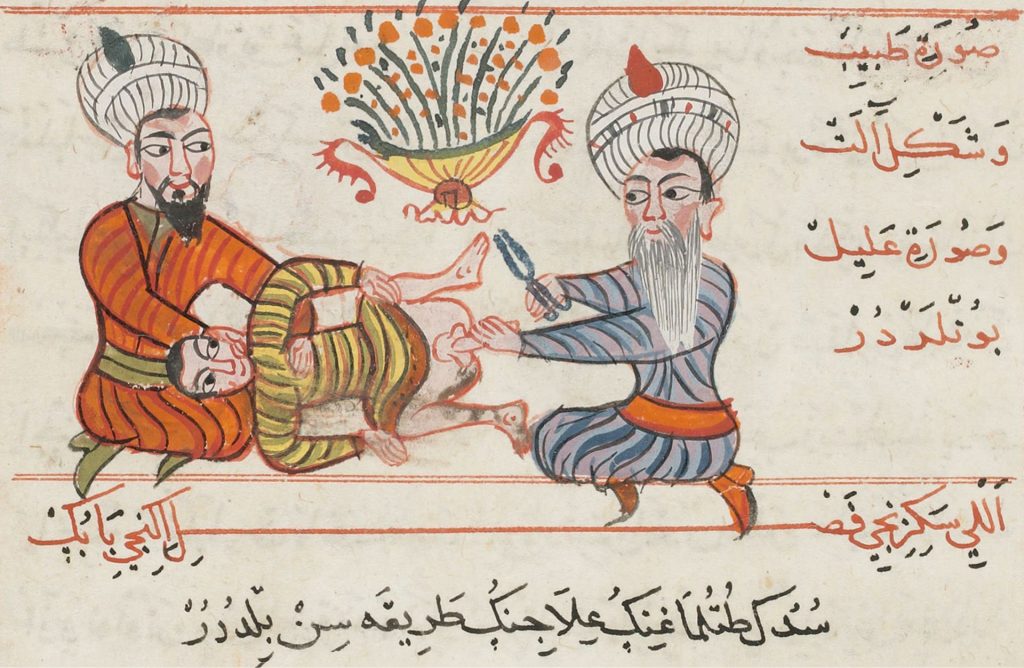 صُورَة طَبيبْ
وَشَكْلِ آلَتْ
وَصُورَة عَلِيلْ
بُونْلَرْدُرْ
اَللِّي سَكِزِنْجِي فَصْلِ اِكِنْجِي بَابُكْ
سُدُكْ طُتُلْمَاغِنِكْ عِلَاجِنِكْ طَرِيقَه سِنْ بِلْدُرُرْ